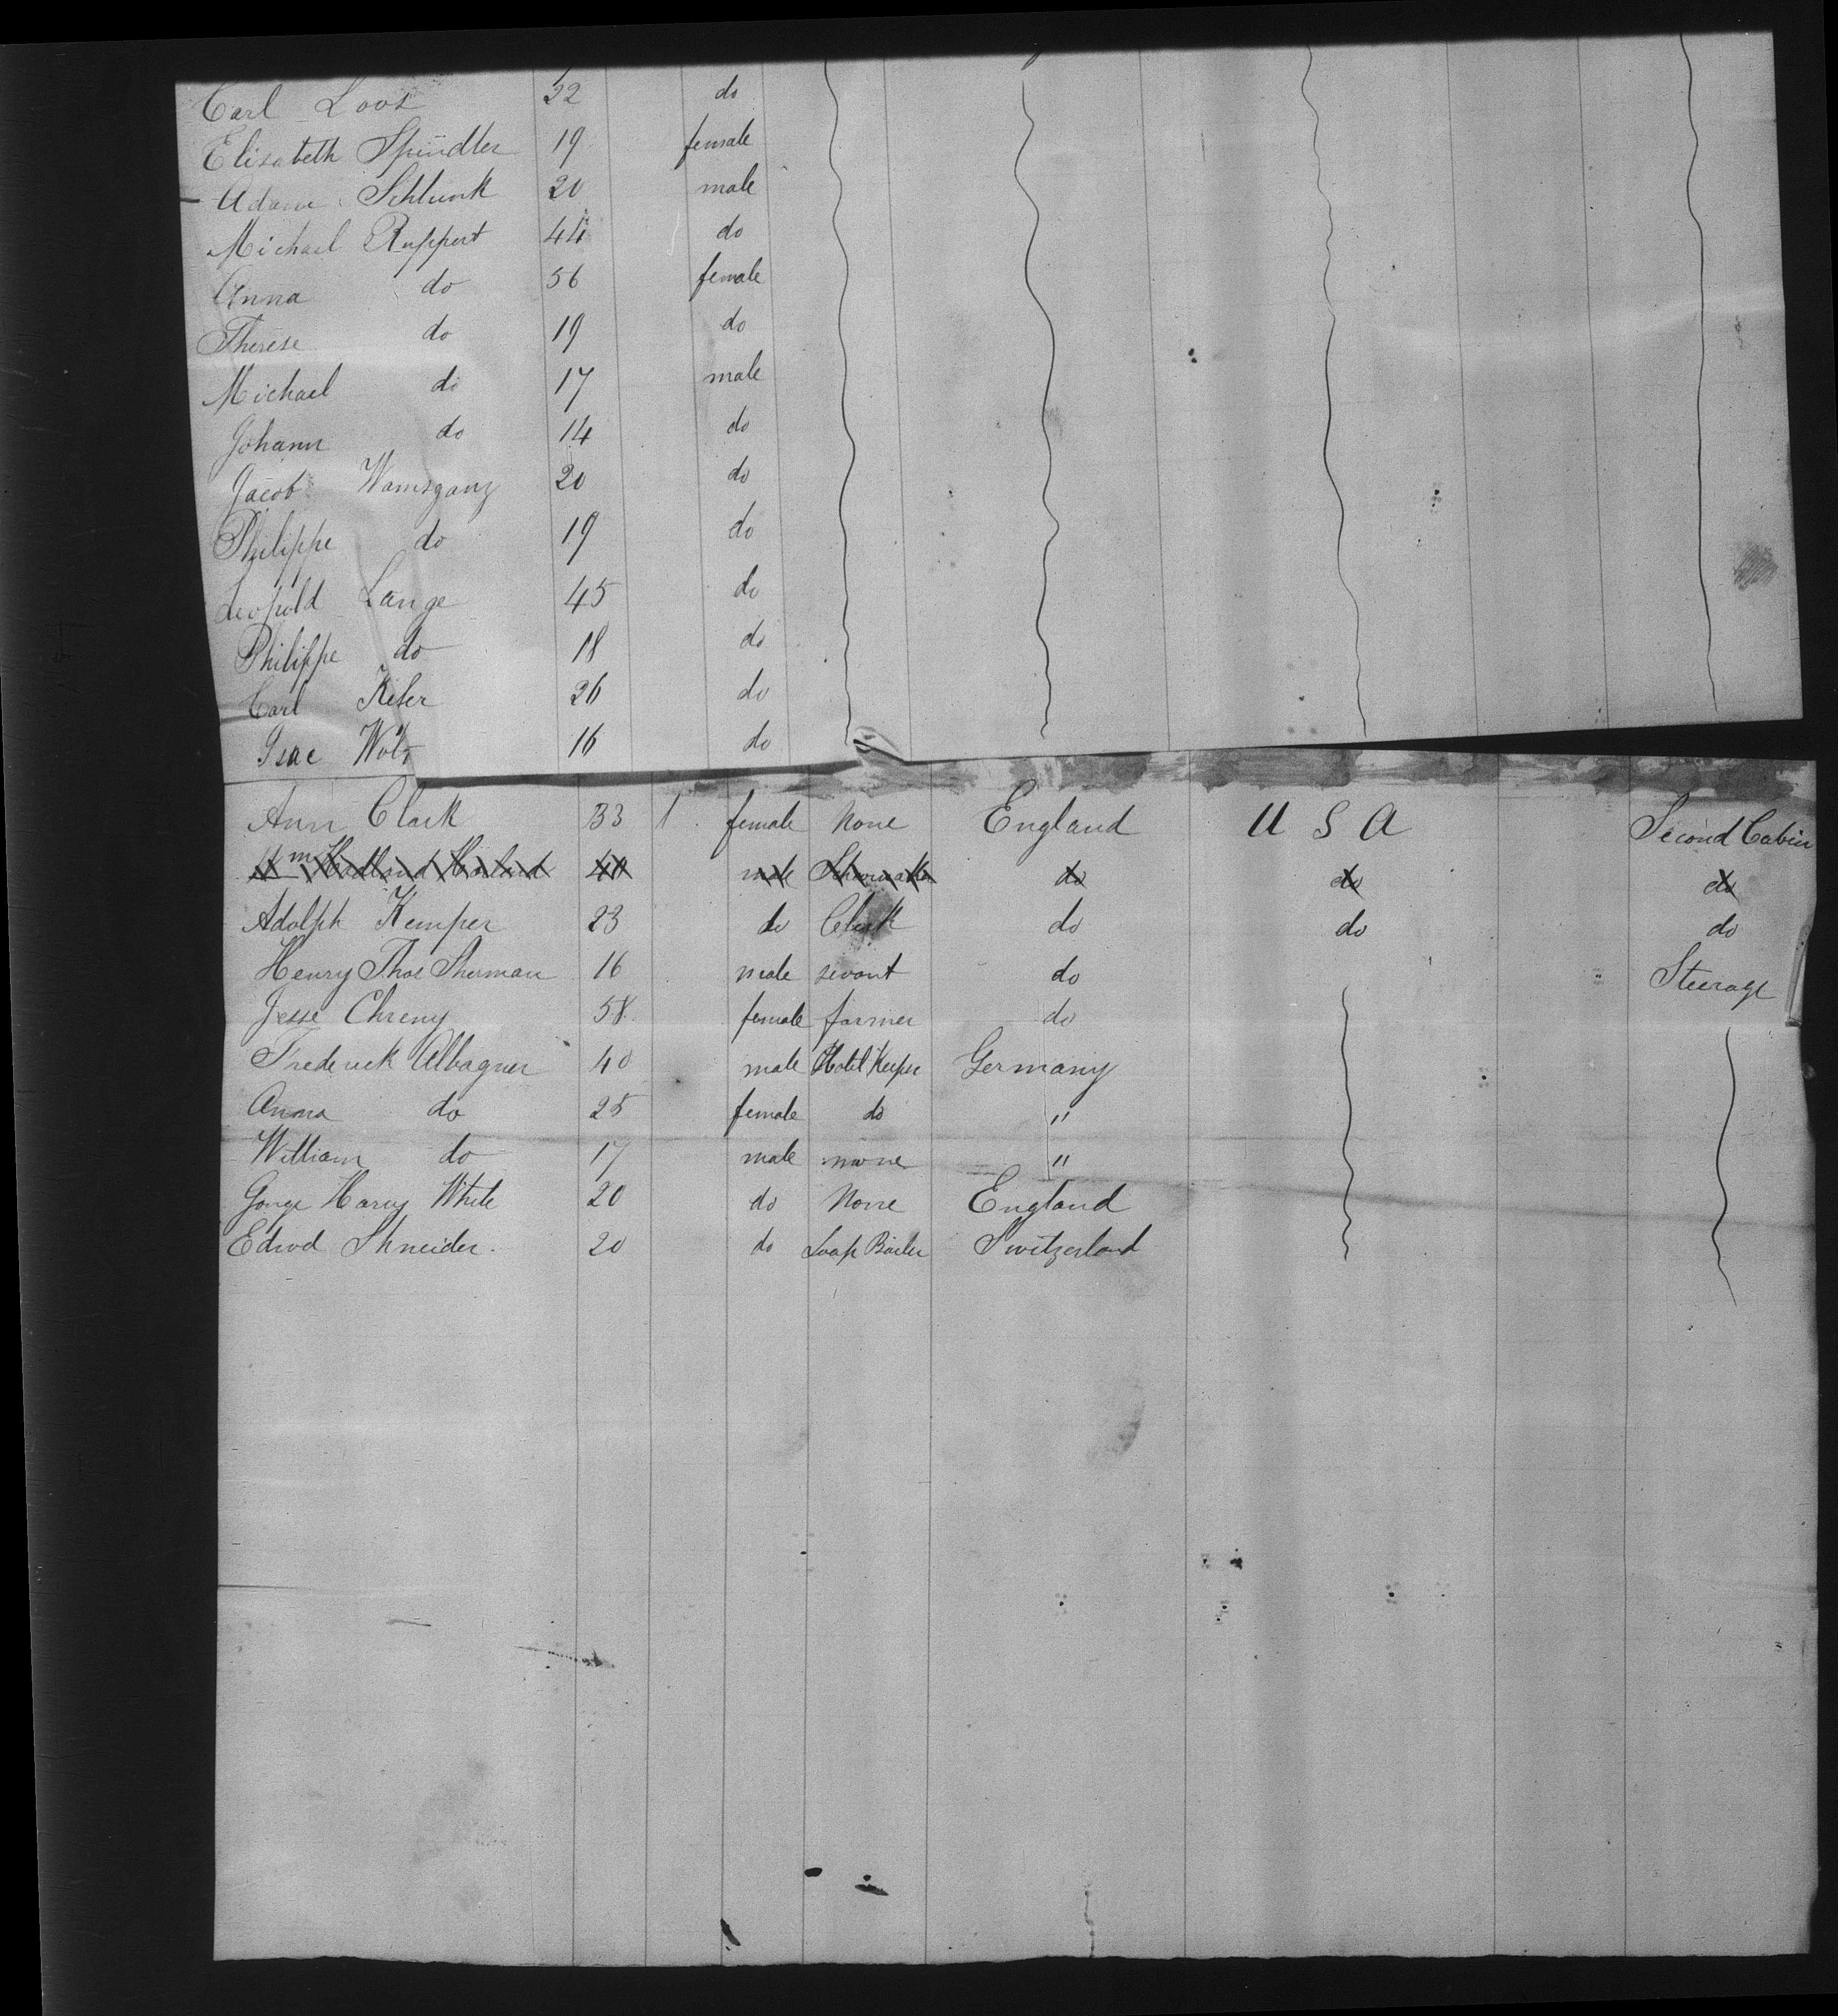 Carl Loos 22 do
Elisabeth Spindler 19 female
Adam Schlunk 20 male
Michael Ruppert 44 do
Anna do 56 female
Therese do 19 do
Michael do 17 male
Johann do 14 do
Jacob Wamsganz 20 do
Philippe do 19 do
Leopold Lange 45 do
Philippe do 18 do
Carl Keler 26 do
Isac Wolr 16 do
Ann Clark 33 1 female None England U S A Second Cabin
Wm 40 male Shoemaker do do do
Adolph Kemper 23 do Clerk do do do
Henry Thos Sherman 16 male sevant do Steerage
Jesse Chreny 58 female farmer do
Frederick Albagner 40 male Hotel Keeper Germany
Anna do 25 female do "
William do 17 male none "
George Harry White 20 do None England
Edwd Shneider. 20 do Soap Boiler Switzerland